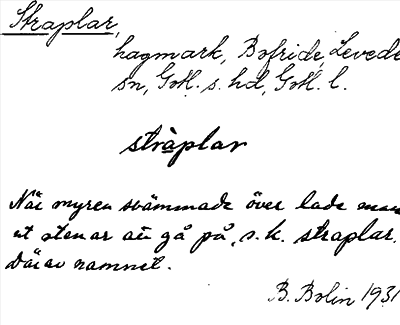 Straplar,
hagmark, Bofride, Levede
sn, Gotl. s. hd, Gotl. l.
stràplar
När myren svämmade över lade man
ut stenar att gå på, s.k. straplar.
Därav namnet.
B. Bolin 1931